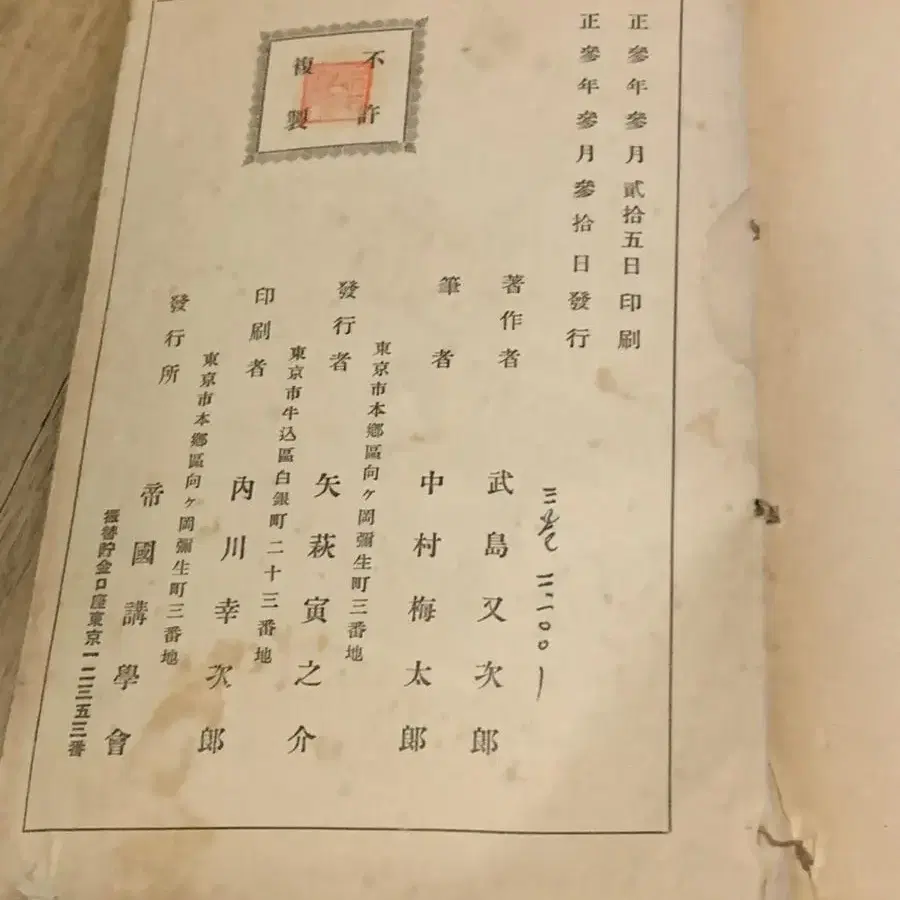 正參年參月貳拾五日印刷
正參年參月參拾日發行
不許
複製
著作者 武島又次郎
筆者 中村梅太郎
東京市本鄕區向ヶ岡彌生町三番地
發行者 矢萩寅之介
東京市牛込區白銀町二十三番地
印刷者 內川幸次郎
東京市本鄕區向ヶ岡彌生町三番地
發行所 帝國講學會
振替貯金口座東京一二三五三番